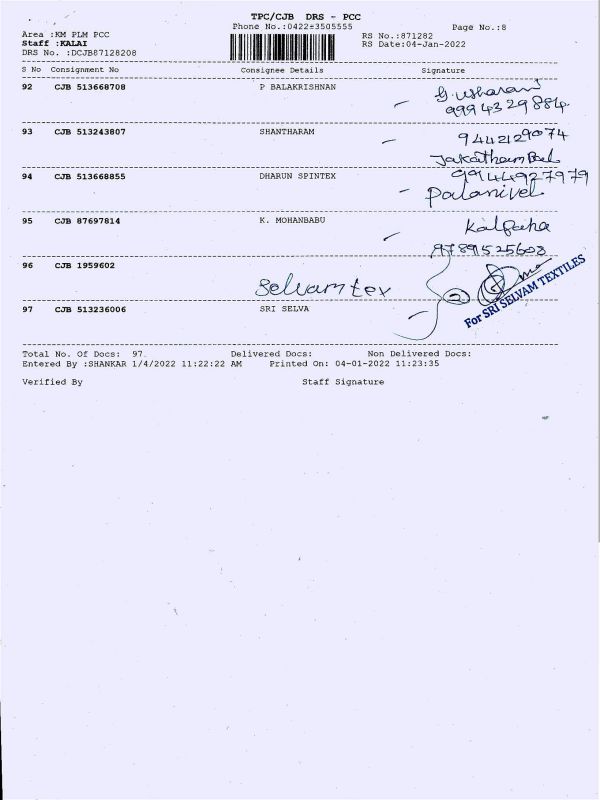 TPC/CJB DRS - PCC
Phone No.:0422-3505555 Page No.:8
Area :KM PLM PCC
RS No.:871282
Staff :KALAI
RS Date:04-Jan-2022
DRS No. :DCJB87128208
S No Consignment No Consignee Details Signature
92 CJB 513668708 P BALAKRISHNAN G. Usharani
9994329884
93 CJB 513243807 SHANTHARAM 9442129074
94 CJB 513668855 DHARUN SPINTEX 9944927979
Palanivel
95 CJB 87697814 K. MOHANBABU
9789525608
96 CJB 1959602
Selvam tex
For SRI SELVAM TEXTILES
97 CJB 513236006 SRI SELVA
Total No. Of Docs: 97. Delivered Docs: Non Delivered Docs:
Entered By :SHANKAR 1/4/2022 11:22:22 AM Printed On: 04-01-2022 11:23:35
Verified By Staff Signature